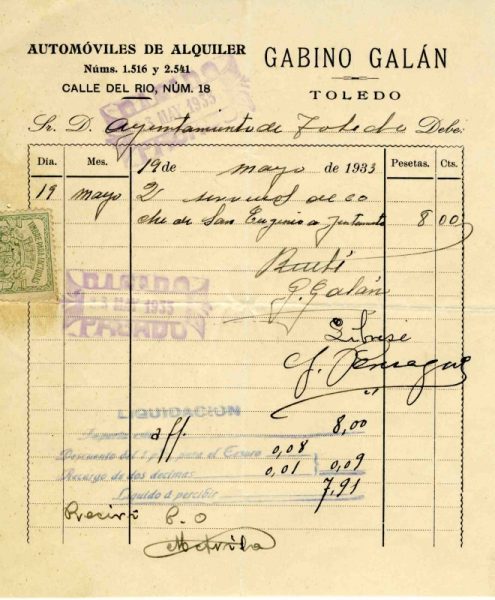 AUTOMÓVILES DE ALQUILER
Núms. 1.516 y 2.541
CALLE DEL RIO, NÚM. 18
GABINO GALÁN
TOLEDO
PAGADO
MAY 1933
PAGADO
Sr. D. Ayuntamiento de Toledo Debe:
Día. Mes. 19 de mayo de 1933 Pesetas. Cts.
19 mayo 2 servicios de co
che de San Eugenio a Juntamto 8 00
Recibí
G. Galán
PAGADO
MAY 1933
PAGADO
Líbrese
LIQUIDACION
Importa 8,00
Descuento del 1 p para el Tesoro 0,08
Recargo de dos décimas 0,01 0,09
Líquido a percibir 7,91
Recibí P. O